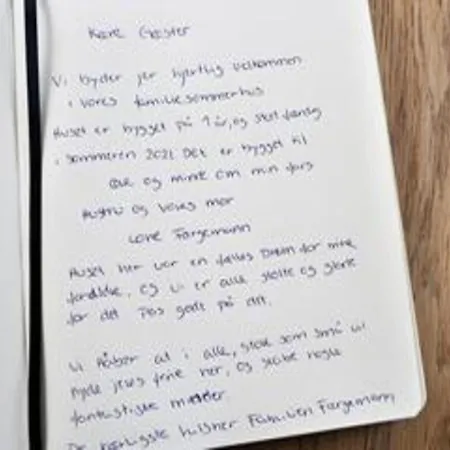 Kære Gæster
Vi byder jer hjertlig velkommen
i vores familiesommerhus
Huset er bygget på 1 år, og stod færdig
i sommeren 2021 Det er bygget til
ære og minde om min fars
Hustru og vores mor
Lone Fargemann
Huset her var en fælles Drøm for mine
forældre, og vi er alle stolte og glade
for det Pas godt på det.
Vi Håber at i alle, store som små vil
nyde jeres ferie her, og skabe nogle
fantastiske minder.
De kærligste hilsner Familien Fargemann